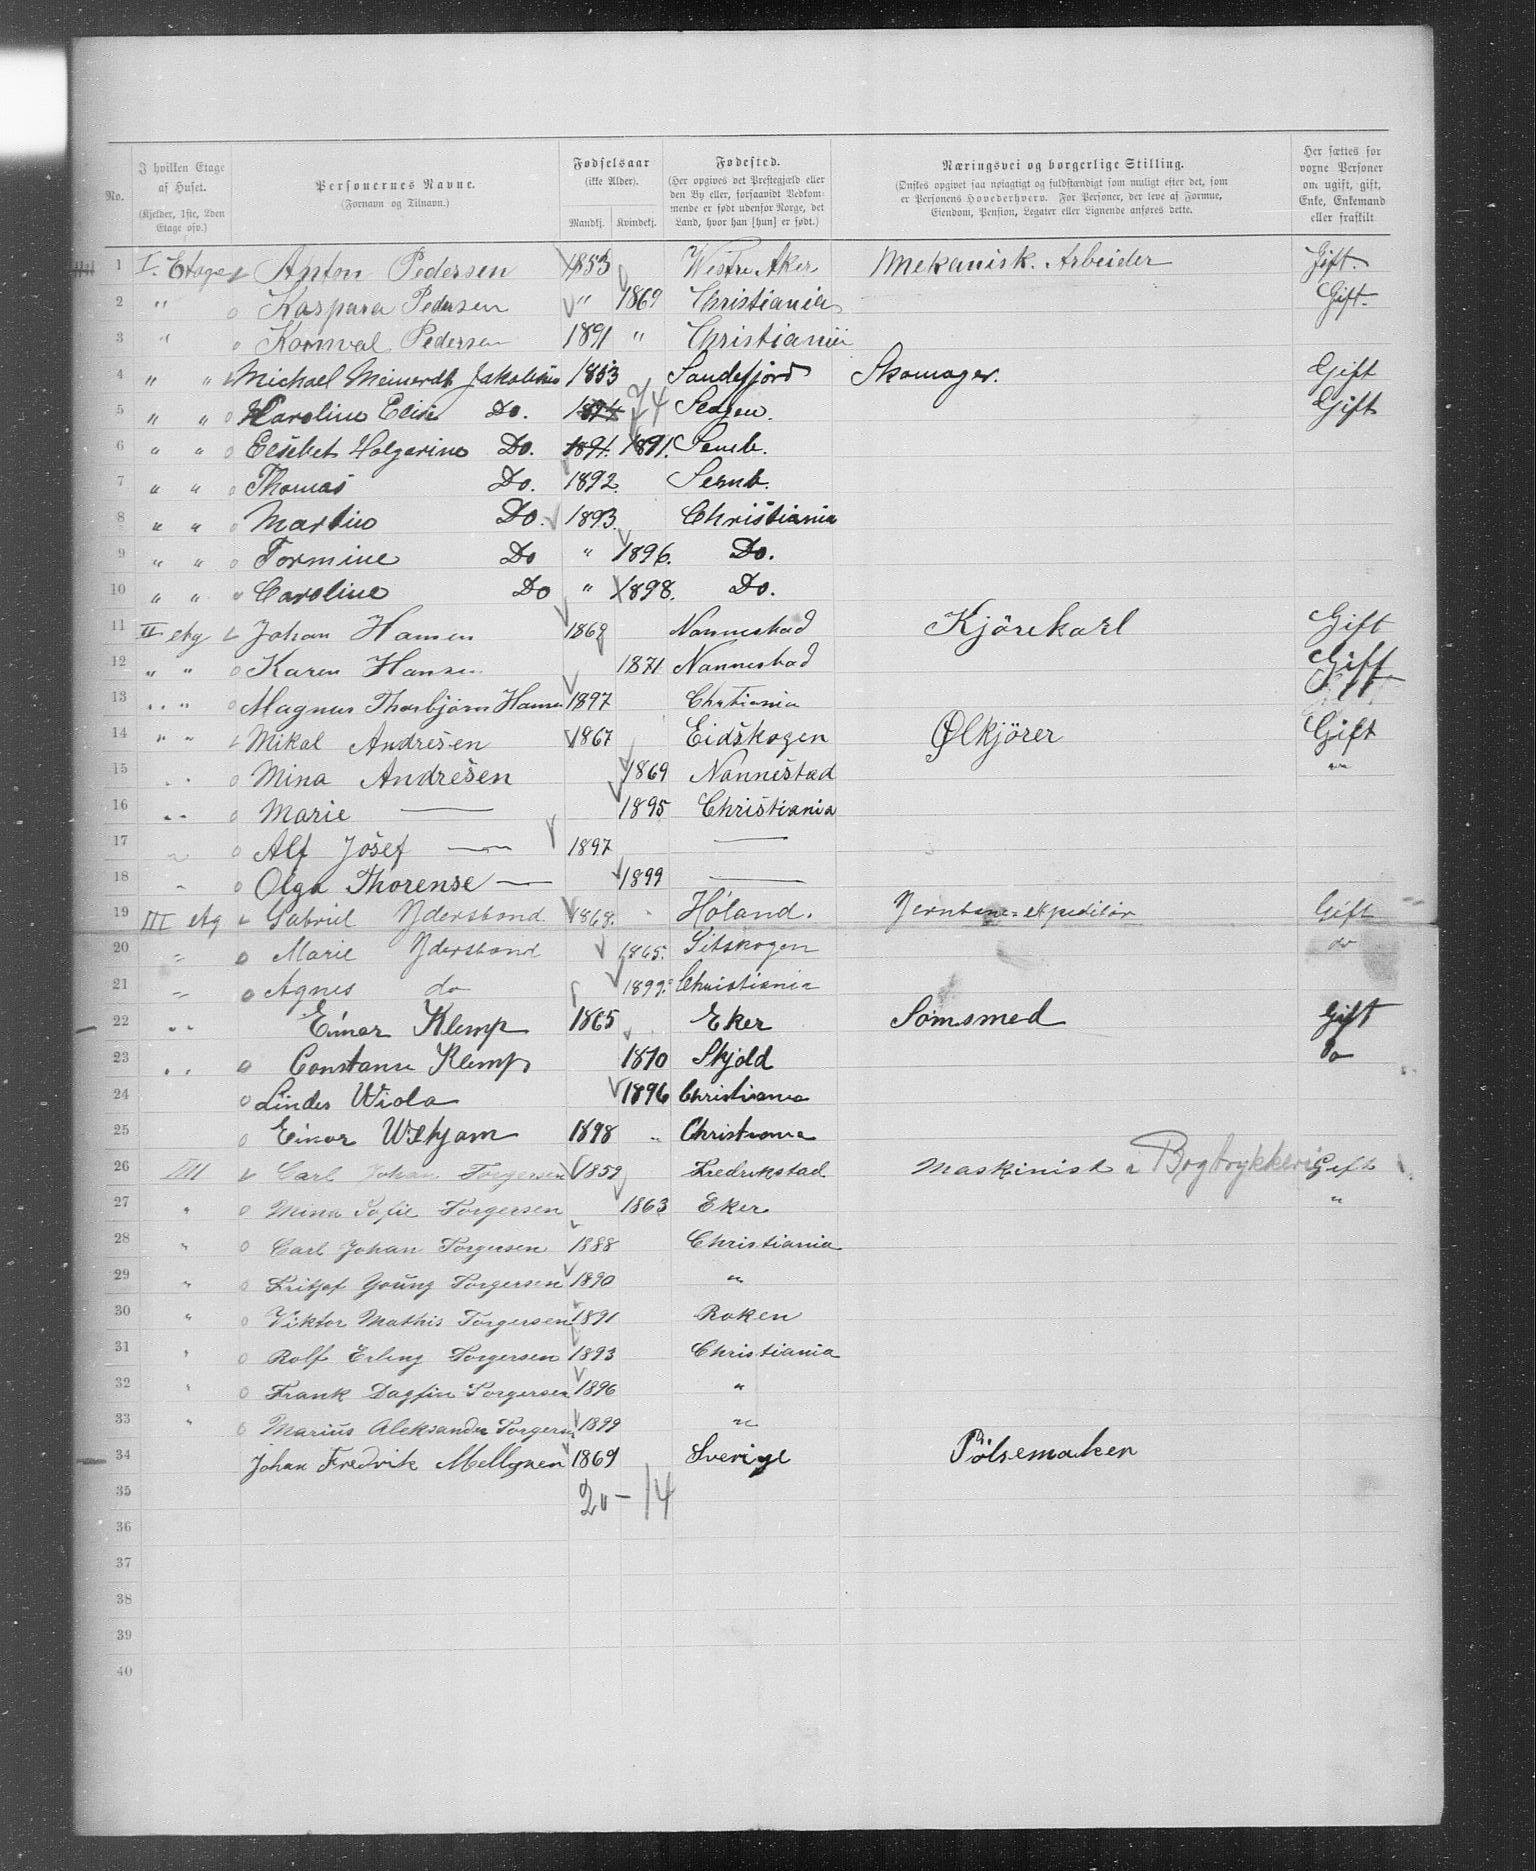 No. | I hvilken Etage af Huset. (Kjelder, 1ste, 2den Etage osv.) | Personernes Navne. (Fornavn og Tilnavn.) | Fødselsaar (ikke Alder). Mandkj. Kvindekj. | Fødested. (Her opgives det Prestegjæld eller den By eller, forsaavidt Vedkommende er født udenfor Norge, det Land, hvor han [hun] er født.) | Næringsvei og borgerlige Stilling. (Ønskes opgivet saa nøiagtigt og fuldstændigt som muligt efter det, som er Personens Hovederhverv. For Personer, der leve af Formue, Eiendom, Pension, Legater eller Lignende anføres dette. | Her sættes for voxne Personer om ugift, gift, Enke, Enkemand eller fraskilt
1 I. Etage Anton Pedersen 1853 Westre Aker Mekanisk. Arbeider Gift.
2 " Kaspara Pedersen " 1869 Christiania Gift.
3 " Pedersen 1891 " Christiania
4 " " Michael Meinerdt 1853 Sandefjord Skomager. Gift
5 " " Karoline Elise Do. 74 Gift
6 " " Elisebet Holgerine Do. 1891. 1891.
7 " " Thomas Do. 1892.
8 " " Martin Do. 1893. Christiania
9 " " Tormine Do " 1896. Do.
10 " " Caroline Do " 1898. Do.
11 II etg Johan Hansen 1869 Nannestad Kjörekarl Gift
12 " " Karen Hansen 1871 Nannestad Gift
13 " " Magnus Thorbjörn Hansen 1897 Christiania
14 " " Mikal Andresen 1867 Eidskogen Ølkjörer Gift
15 " Mina Andresen 1869 Nannestad "
16 " Marie — 1895 Christiania
17 " Alf Josef — 1897 —
18 " Olga Thorense — 1899 —
19 III etg Gabriel Ydersbond 1868. " Höland. Jernbane-ekspeditör Gift
20 " Marie Ydersbond 1865. Sitskogen do
21 " Agnes do 1899. Christiania
22 " Einar Klemp 1865 Eker Sömsmed Gift
23 " Constanse Klemp 1870 Skjold Do
24 Lindes Wiola 1896 Christiania
25 Einar 1898 " Christiania
26 III Carl Johan Torgersen 1859 Fredrikstad Maskinist i Bogtrykkeri Gift
27 " Mina Sofie Torgersen 1863 Eker "
28 " Carl Johan Torgersen 1888 Christiania
29 " Fritjof Young Torgersen 1890 "
30 " Viktor Mathis Torgersen 1891 Röken
31 " Rolf Erling Torgersen 1893 Christiania
32 " Frank Dagfin Torgersen 1896 "
33 " Marius Aleksander Torgersen 1899 "
34 Johan Fredrik 1869 Sverige Pölsemaker
35
20 – 14
36
37
38
39
40